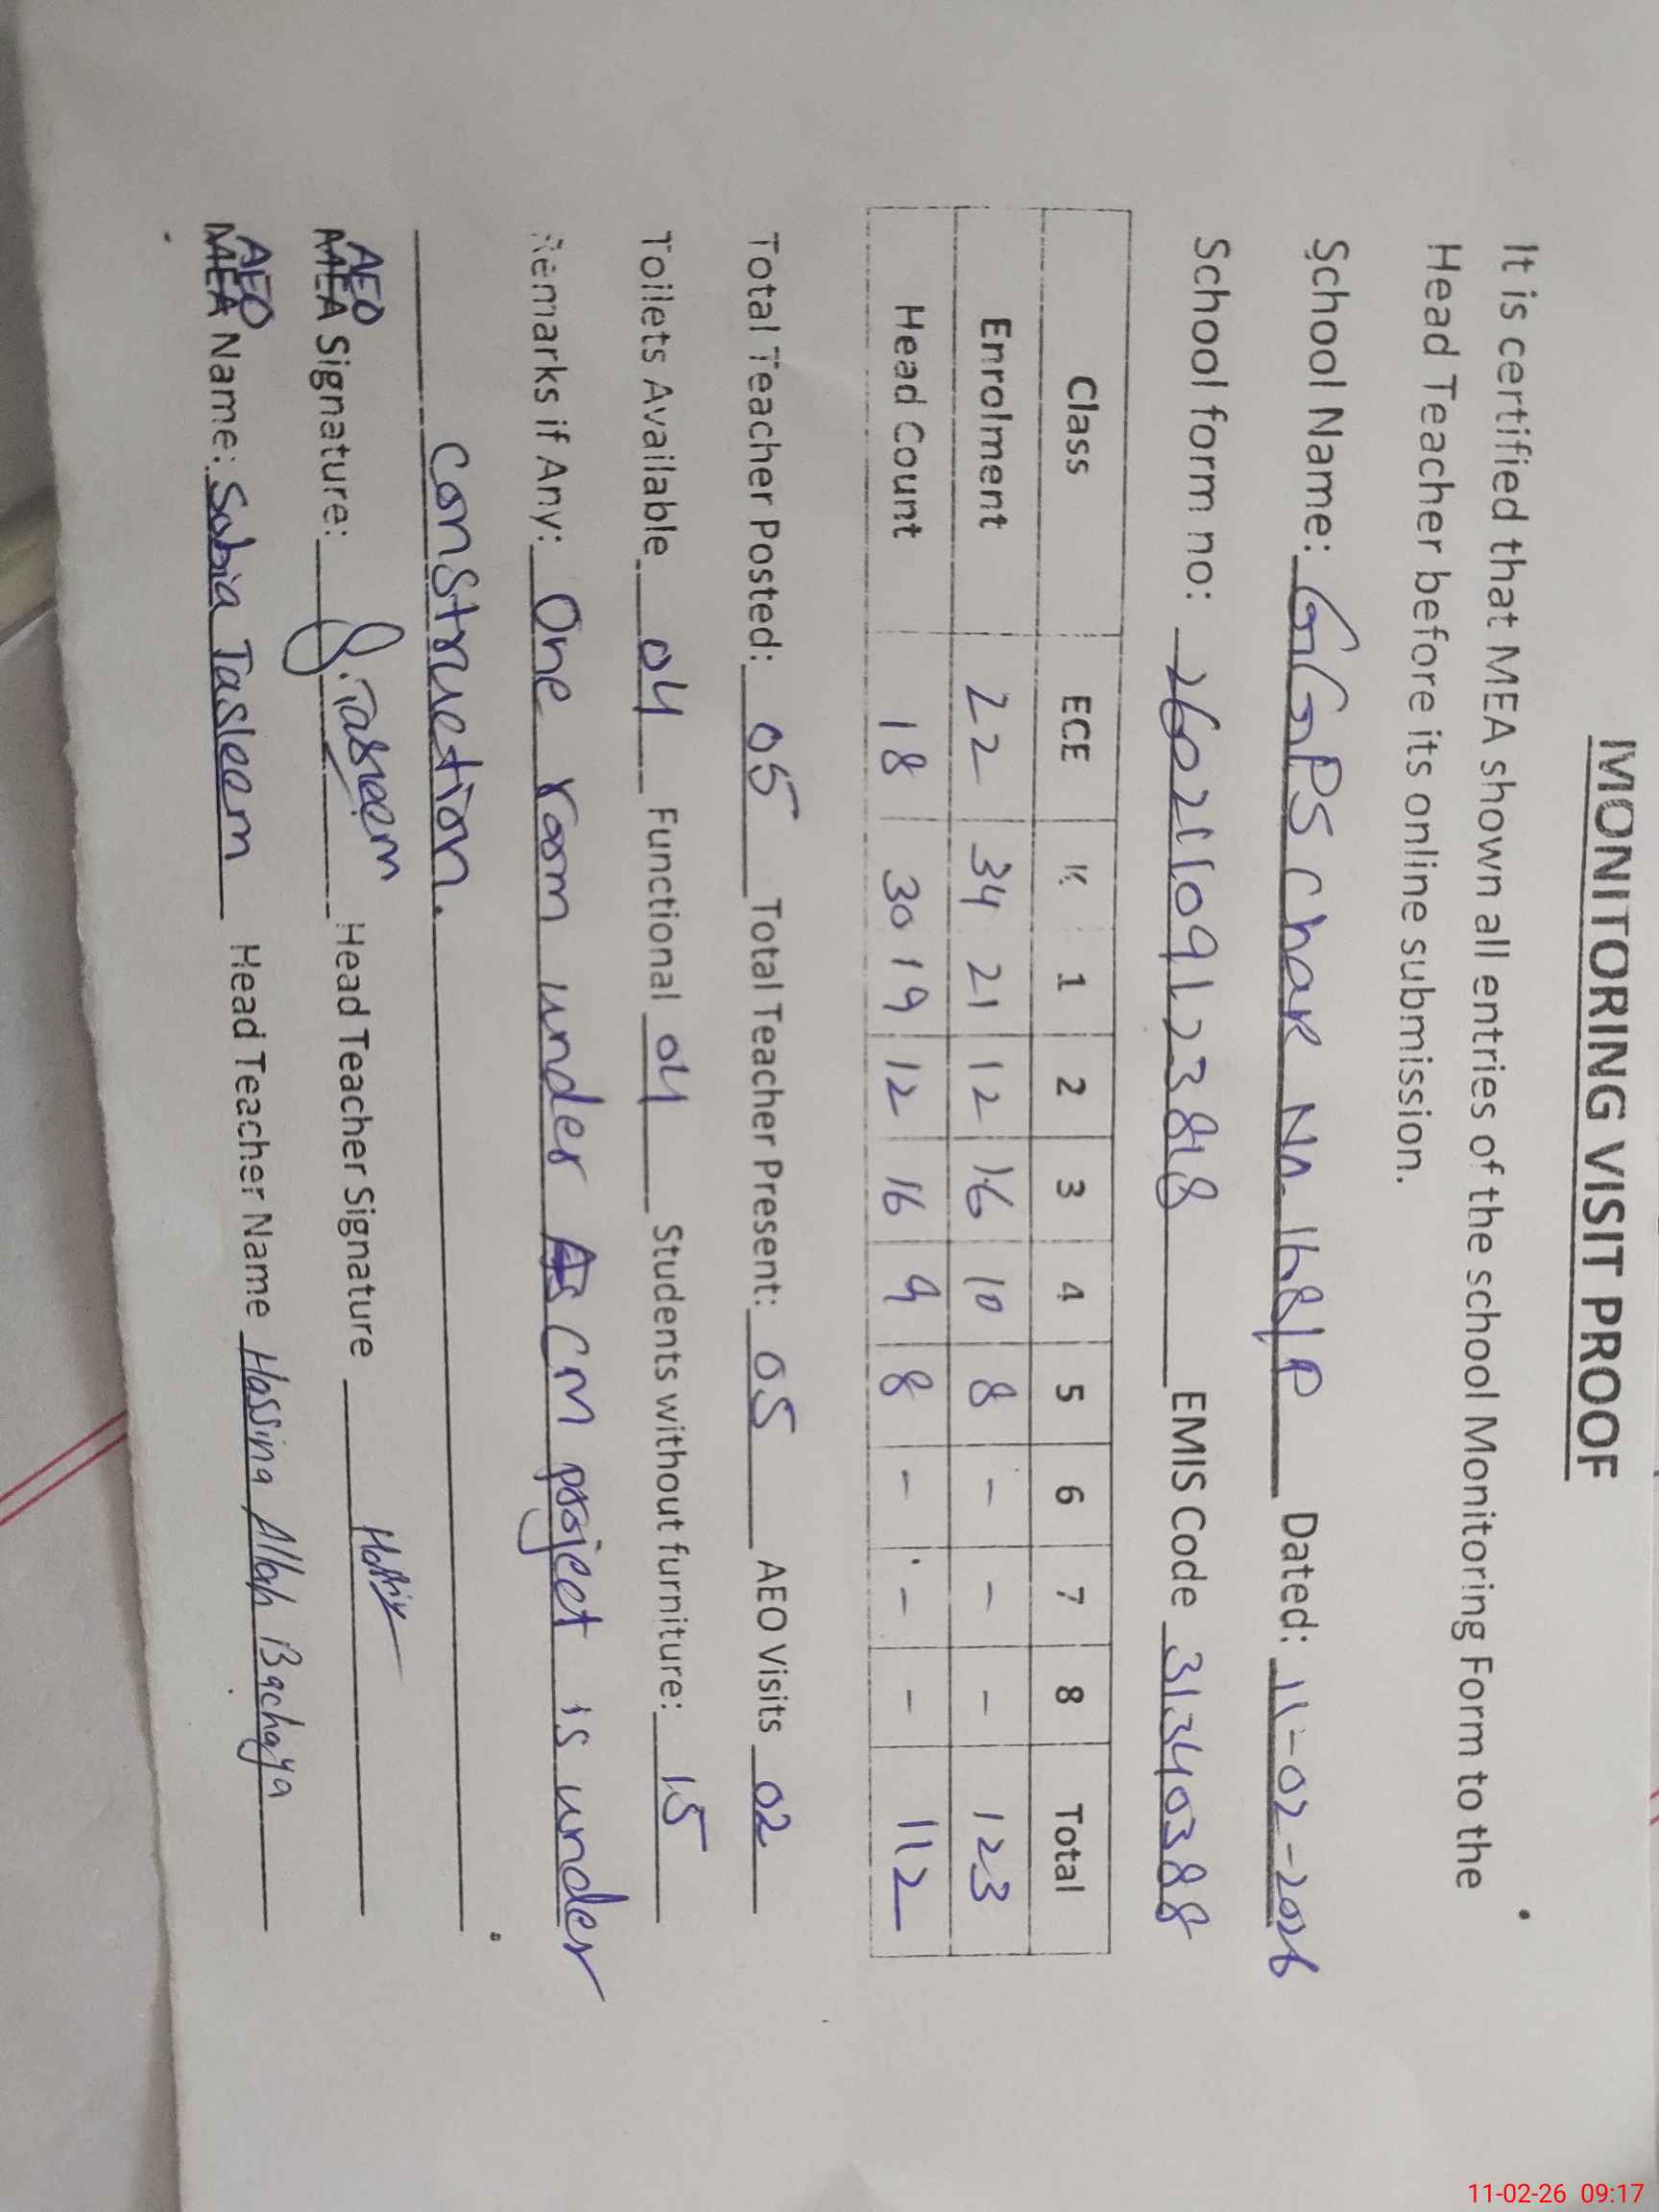 MONITORING VISIT PROOF
It is certified that MEA shown all entries of the school Monitoring Form to the
Head Teacher before its online submission.
School Name: GGPS Chak No. 168/P Dated: 11-02-2026
School form no: 260211091223818 EMIS Code 31340388
Class ECE K 1 2 3 4 5 6 7 8 Total
Enrolment 22 34 21 12 16 10 8 - - - 123
Head Count 18 30 19 12 16 9 8 - - - 112
Total Teacher Posted: 05 Total Teacher Present: 05 AEO Visits 02
Toilets Available 04 Functional 04 Students without furniture: 15
Remarks if Any: One room under CM project is under
construction.
AEO Signature: S. Tasleem Head Teacher Signature
AEO Name: Sobia Tasleem Head Teacher Name Hassina Allah Bachaya
11-02-26 09:17